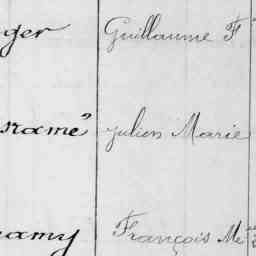 ger Guillaume F
name" Julien Marie
amy François Me